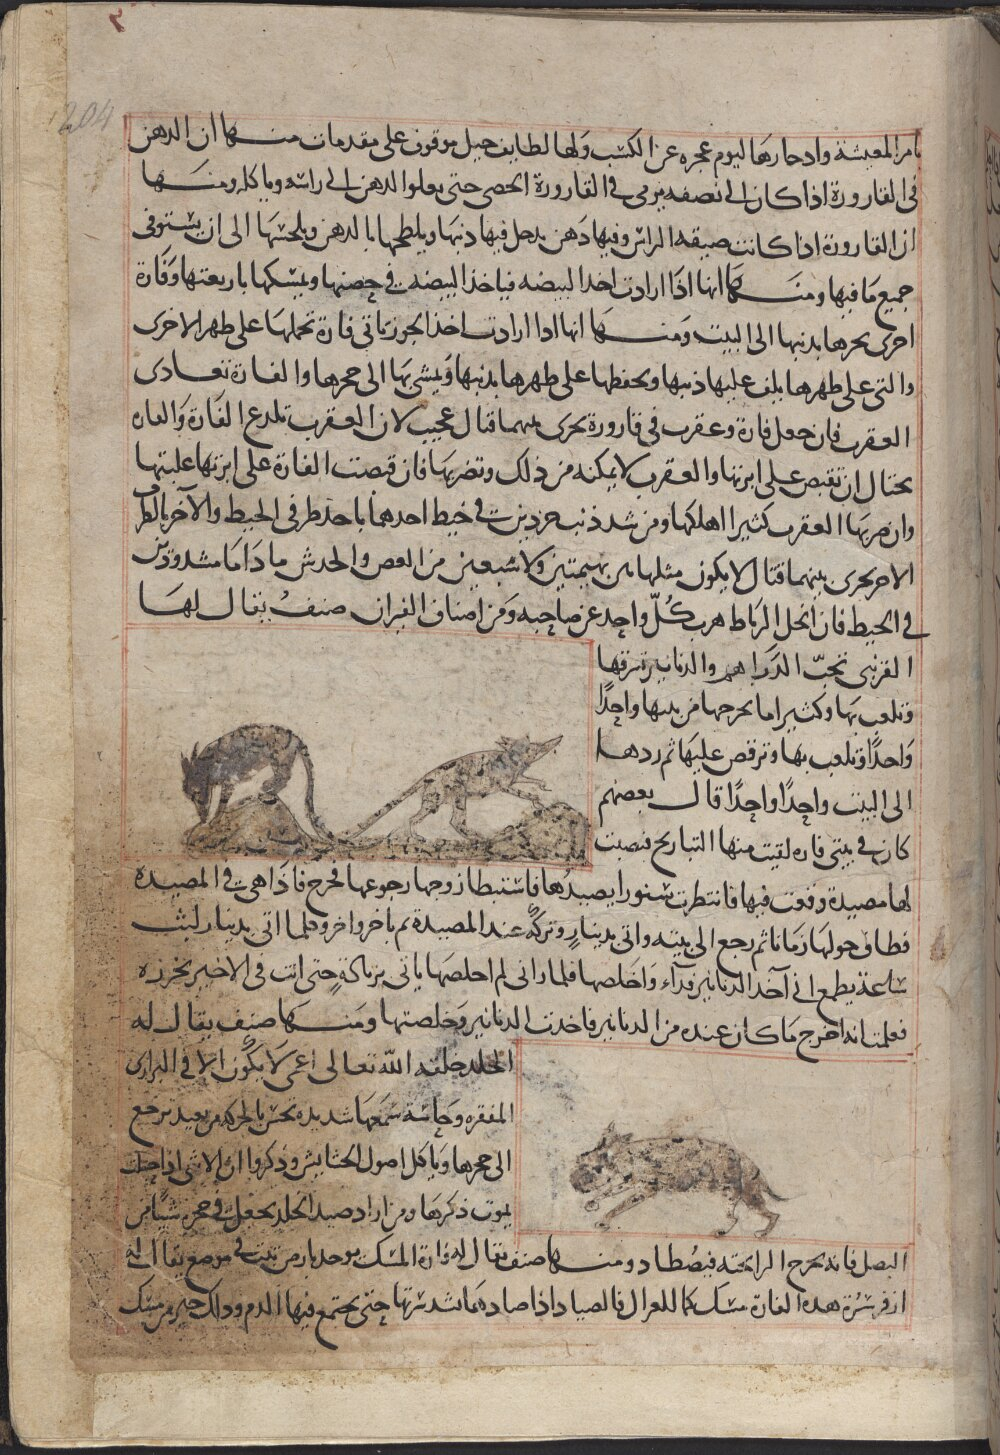 ٣
204
بامر المعيشة وادحارها ليوم عجره عن الكسب ولها لطايف حيل موقوف على مقدمات منها ان الدهن
فى القارورة اذا كان الى نصفه يرمى فى القارورة الحصى حتى يعلوا الدهن الى راسه وياكله ومنها
ان القارورة اذا كانت ضيقه الراس وفيها دهن يدخل فيها ذنبها ويلطخها بالدهن ويلحسها الى ان يستوفى
جميع ما فيها ومنها انها اذا ارادت اخذ البيضه فياخذ البيضه فى حضنها ويمسكها باربعتها وفارة
اخرى يجرها بذنبها الى البيت ومنها انها اذا ارادت اخذ الجوز تاتى فارة تحملها على ظهر الاخرى
والتى على ظهرها يلف عليها ذنبها ويحفظها على ظهرها بذنبها ويمشى بها الى جحرها والفارة تعادى
العقرب فان جعل فارة وعقرب فى قارورة يجرى بينهما قتال عجيب لان العقرب تلدغ الفارة والفاره
يحتال ان تقبض على ابرتها والعقرب لا يمكنه من ذلك وتضربها فان قبضت الفارة على ابرتها غلبتها
وان ضربها العقرب كثيرا اهلكها ومن شد ذنب جرذين فى خيط احدهما باحد طرفى الخيط والآخر بالطرف
الاخر يجرى بينهما قتال لا يكون مثلها بين بهيمتين ولا سبعين من العض والخدش ما داما مشدودين
فى الخيط فان انحل الرباط هرب كل واحد عن صاحبه ومن اصناف الفيران صنف يقال لها
القرنبى تحب الدراهم والدنانير تسرقها
وتلعب بها وكثيرا ما يخرجها من بيتها واحدًا
واحدًا وتلعب بها وترقص عليها ثم ردها
الى البيت واحدًا واحدًا قال بعضهم
كان فى بيتى فاره لقيت منها التباريح فنصبت
لها مصيدة وقعت فيها فانتظرت سنورا يصيدها فاستبطا زوجها رجوعها فخرج فاذا هى فى المصيدة
فطاف حولها زمانا ثم رجع الى بيته واتى بدينار وتركه عند المصيدة ثم باخر واخر وكلما اتى بدينار لبث
ساعة يطمع انى آخذ الدنانير فداء واخلصها فلما رانى لم اخلصها ياتى بزيادة حتى اتت فى الاخير بخرزه
فعلمت انه اخرج ما كان عنده من الدنانير فاخذت الدنانير وخلصتها ومنها صنف يقال له
الخلد خلقه الله تعالى اعمى لا يكون الا فى البرارى
المقفره وحاسة سمعها شديده تحس بالحركه من بعيد ترجع
الى جحرها وياكل اصول الحشايش وذكروا ان الانثى اذا حبلت
يموت ذكرها ومن اراد صيد الخلد يجعل فى جحره شيئا من
البصل فانه يخرج الرايحته فيصطاد ومنها صنف يقال له فارة المسك يوجد بارض تبت فى موضع يقال له
سرة هذه الفارة مسك كما للغزال فالصياد اذا صادها شد سرتها حتى يجتمع فيها الدم وذلك خير من مسك